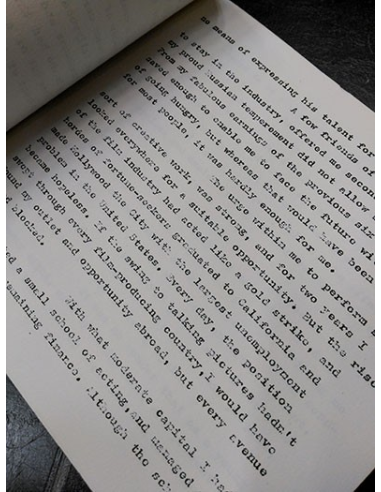 no means of expressing his talent for
a few friends of
to stay in the industry, offered me secon
my proud Russian temperament did not allow
From my fabulous earnings of the previous six
saved enough to enable me to face the future wi
of going hungry, but whereas that would have been
for most people, it was hardly enough for me.
The urge within me to perform s
sort of creative work was strong, and for two years I
looked everywhere for a suitable opportunity. But the rise
of the film industry had acted like a gold strike, and
hordes of fortune-seekers graduated to California and
made Hollywood the city with the largest unemployment
problem in the United States. Every day, the position
became hopeless. If the swing to talking pictures hadn't
swept through every film-producing country, I would have
found my outlet and opportunity abroad, but every avenue
d blocked.
With what moderate capital I ha
ed a small school of acting, and managed
remaining finance. Although the sch